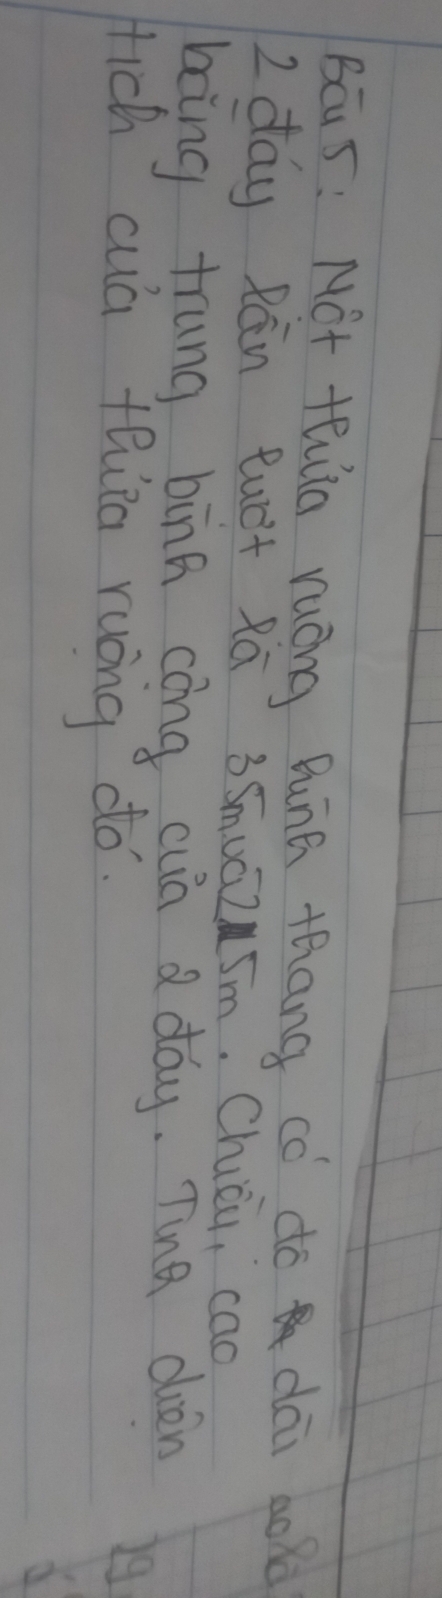 Bài 5: Một thửa ruộng hình thang có độ dài
2 đáy lần lượt là 35m và 25m. Chiều cao
bằng trung bình cộng của 2 đáy. Tính diện
tích của thửa ruộng đó.